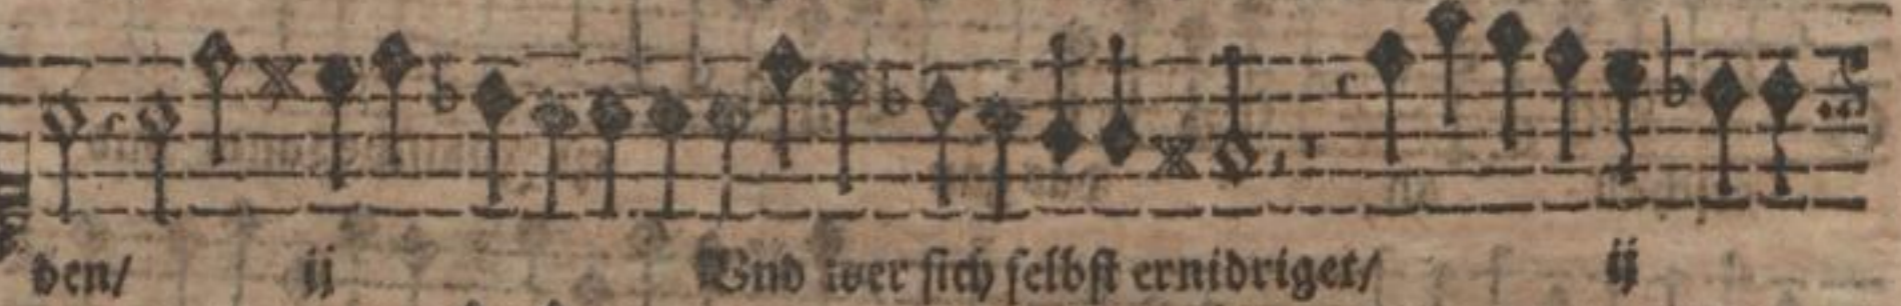 den/ ij Vnd wer sich selbst ernidriget/ ij